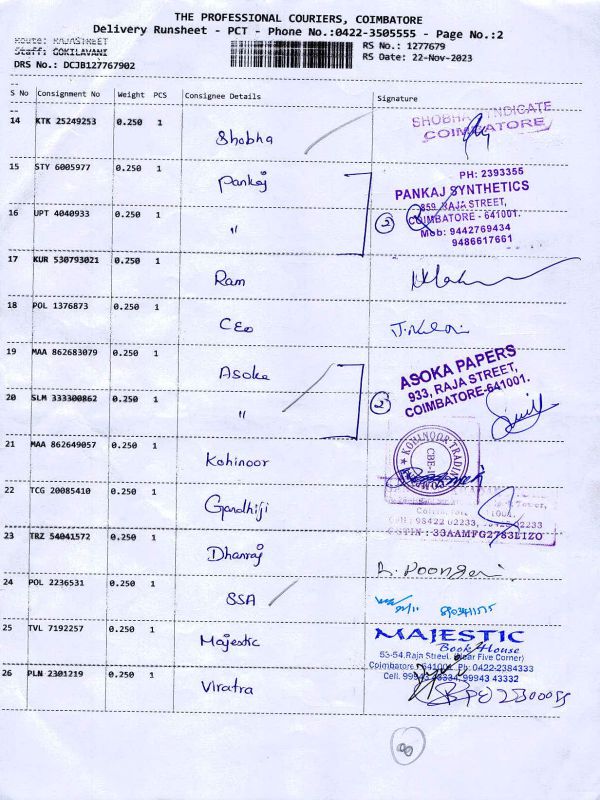 THE PROFESSIONAL COURIERS, COIMBATORE
Delivery Runsheet - PCT - Phone No.:0422-3505555 - Page No.:2
Route: RAJASTREET
Staff: GOKILAVANI
RS No.: 1277679
DRS No.: DCJB127767902
RS Date: 22-Nov-2023
S No Consignment No Weight PCS Consignee Details Signature
14 KTK 25249253 0.250 1 Shobha
SHOBHA SYNDICATE
COIMBATORE
15 STY 6005977 0.250 1 Pankaj
PH: 2393355
PANKAJ SYNTHETICS
859, RAJA STREET,
16 UPT 4040933 0.250 1 "
2
COIMBATORE - 641001.
Mob: 9442769434
9486617661
17 KUR 530793021 0.250 1 Ram
18 POL 1376873 0.250 1 CEO
19 MAA 862683079 0.250 1 Asoka
ASOKA PAPERS
933, RAJA STREET,
COIMBATORE-641001.
20 SLM 333300862 0.250 1 "
2
21 MAA 862649057 0.250 1 Kohinoor
KOHINOOR TRADING
22 TCG 20085410 0.250 1 Gandhiji
23 TRZ 54041572 0.250 1 Dhanraj
GSTIN: 33AAMFG2783E1ZO
24 POL 2236531 0.250 1 SSA
25 TVL 7192257 0.250 1 Majestic
MAJESTIC
Book House
53-54, Raja Street, (Near Five Corner)
Coimbatore - 641001. Ph: 0422-2384333
99943 43332
26 PLN 2301219 0.250 1 Viratra